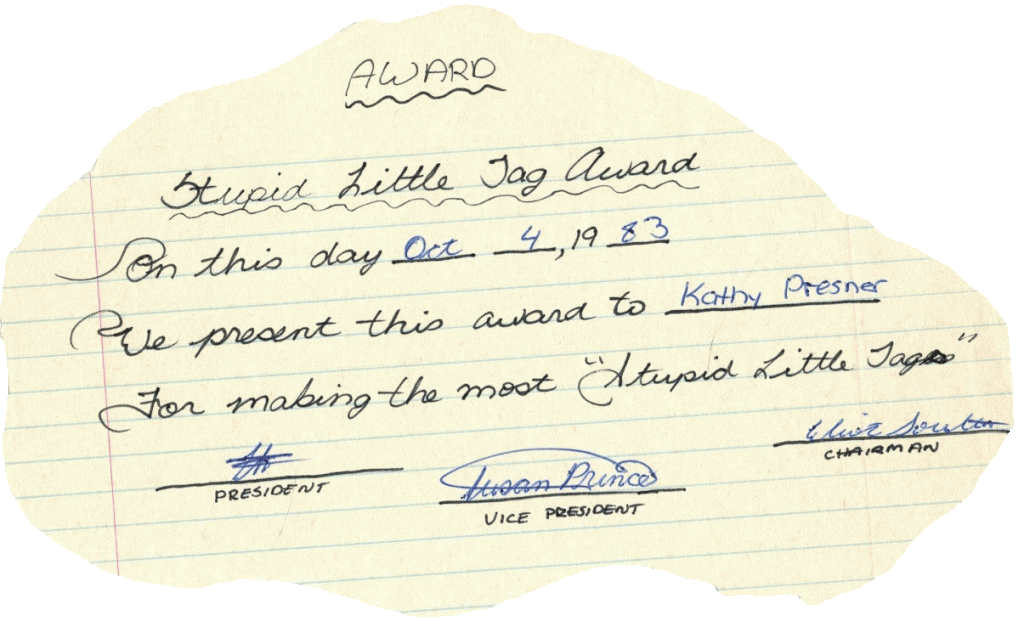 AWARD
Stupid Little Tag Award
On this day Oct 4, 19 83
We present this award to Kathy Presner
For making the most "Stupid Little Tags"
CHAIRMAN
PRESIDENT
Susan Prince
VICE PRESIDENT